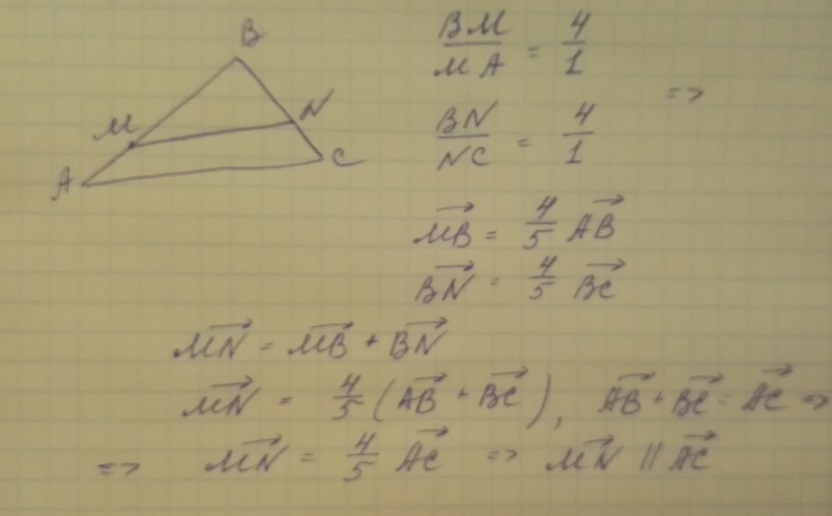 B
M
N
A
C
BM/MA = 4/1
=>
BN/NC = 4/1
MB⃗ = 4/5 AB⃗
BN⃗ = 4/5 BC⃗
MN⃗ = MB⃗ + BN⃗
MN⃗ = 4/5 (AB⃗ + BC⃗), AB⃗ + BC⃗ = AC⃗ =>
=> MN⃗ = 4/5 AC⃗ => MN⃗ || AC⃗